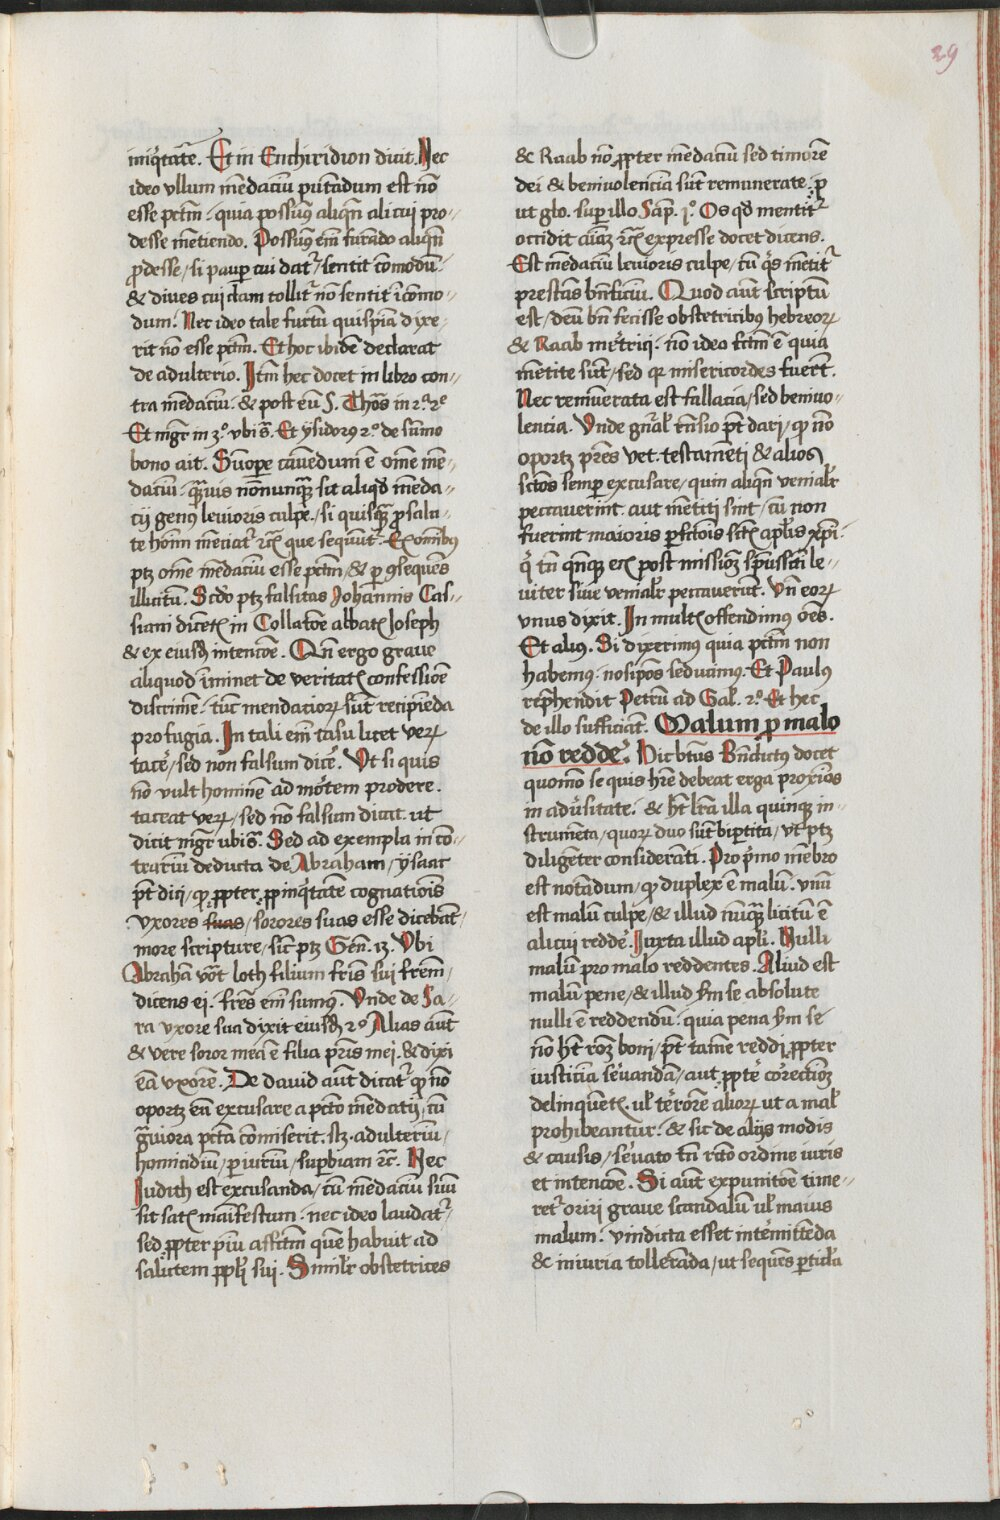 29
iniq̄tate᷒. Et in Enchiridion dicit. Nec
ideo vllum mēdaciū putādum est nō
esse pctm̄. quia possum9 aliqn̄ alicui pro⸗
desse mētiendo. Possum9 em̄ furādo aliqn̄
ꝓdesse/ si paup cui dat᷒/ sentit cōmodū.
& dives cui clam tollit᷒ nō sentit īcōmo⸗
dum. Nec ideo tale furtū quispiā dixe⸗
rit nō esse pctm̄. Et hoc ibidē declarat
de adulterio. Itm̄ hec docet in libro con⸗
tra mēdaciū. & post eū S. Thōs in 2ª.2ᵉ
Et mgr̄ in 3º. vbi s̄. Et ysidor9 2º. de sūmo
bono ait. Sūope cavēdum ē ome mē⸗
daciū. quāvis nōnunqꝫ sit aliqd̄ mēda⸗
cij genus levioris culpe./ si quisqꝫ ꝓ salu⸗
te hom̄ menciat᷒ ꝛcꝭ que sequūt᷒. Ex omībus
ptꝫ ome mēdaciū esse pctm̄/ & p 9sequēs
illicitū. Scdo ptꝫ falsitas Johannis Cas⸗
siani dicētꝭ in Collatōe abbatꝭ Joseph
& ex eiusdꝫ intencōe. Qn̄ ergo grave
aliquod īminet de veritatꝭ confessiōe
discrimē. tūc mendacioꝝ sūt recipiēda
profugia. In tali em̄ casu licet veꝝ
tacē᷒/ sed non falsum dicē᷒. Vt si quis
nō vult hominē ad mōrtem prodere.
taceat veꝝ/ sed nō falsum dicat. ut
dicit mgr̄ ubi s̄. Sed ad exempla in cō⸗
trariū deducta de Abraham/ ysaac
pt̄ dici/ ꝙ ꝓpter ꝓpinq̄tatē cognatiōis
vxores suas/ sorores suas esse dicebāt/
more scripture/ sic̄ ptꝫ Gen̄. 13. Vbi
Abrahā vōt loth filium fr̄is sui fr̄em/
dicens ei. fr̄es em̄ sum9. Vnde de Sa⸗
ra vxore sua dixit eiusdꝫ 20 Alias aūt
& vere soror mea ē filia pr̄is mei. & dixi
eā vxorē. De david aūt dicat᷒ ꝙ nō
oportꝫ eū excusare a pctō mēdacij, cū
gᵃviora pctā cōmiserit. scꝫ. adulteriū/
homicidiū/ periuriū/ superbiam ꝛc̄. Nec
Judith est excusanda/ cū mēdaciū suū
sit satꝭ māifestum. nec ideo laudat᷒/
sed ꝓpter piū affctm̄ quē habuit ad
salutem ppl̄i sui. Simil᷒r obstetrices
& Raab nō ꝓpter mēdaciū sed timorē
dei & benivolenciā sūt remunerate. ꝓ
ut glo. super illo Sap̄. jº. Os qd̄ mentit᷒
occidit aīaꝫ ꝛcꝭ expresse docet dicens.
Est mēdaciū levioris culpe/ cū q̄s mētit᷒
prestās bn̄ficiū. Quod aūt scriptū
est/ deū bn̄ fecisse obstetricibus hebreoꝝ
& Raab mēt᷒riq̄. nō ideo fctm̄ ē quia
mētite sūt/ sed qꝛ misericordes fuer̄t.
Nec remūerata est fallacia/ sed benivo⸗
lencia. Vnde gn̄alr̄ cn̄sio pt̄ dari/ ꝙ nō
oportꝫ pr̄es vet. testamēti & alios
sctōs semper excusare/ quin aliqn̄ venial᷒r
peccaverint. aut mētiti sint/ cū non
fuerint maioris pfctōis sctꝭ apl̄is xpī.
q̄ tn̄ qn̄qꝫ etꝭ post missioꝫ sp̄ussctī le⸗
viter sive venial᷒r peccaverūt. Vn̄ eoꝝ
vnus dixit. In multꝭ offendimus oēs.
Et alius. Si dixerimus quia pctm̄ non
habem9. nosip̄os seducimus. Et Paulus
rep̄hendit Petrū ad Gal᷒. 2º. Et hec
de illo sufficiāt. Malum ꝓ malo
nō reddē᷒. Hic btūs Bn̄dictus docet
quomō se quis hr̄e debeat erga proxīos
in advsitate. & ht̄ lr̄a illa quinqꝫ in⸗
strumēta/ quoꝝ duo sūt bipertita/ vt ptꝫ
diligēter considerāti. Pro p̄mo mēbro
est notādum/ ꝙ duplex ē malū. vnū
est malū culpe/ & illud nūqꝫ licitū ē
alicui reddē᷒. Juxta illud apl̄i. Nulli
malū pro malo reddentes. Aliud est
malū pene/ & illud scdm̄ se absolute
nulli ē reddendū. quia pena scdm̄ se
nō ht̄ rōꝫ boni/ pt̄ tamē reddi ꝓpter
iusticiā se᷒vandā/ aut ꝓptē᷒ corectiōꝫ
delinquētꝭ. ul᷒ te᷒rorē alioꝝ ut a mal᷒
prohibeantur. & sic de alijs modis
& causis/ se᷒vato tn̄ rcto ordine iuris
et intencōe. Si aūt ex punitōe time⸗
ret᷒ oriri grave scandalū ul᷒ maius
malum. vindicta esset inte᷒mittēda
& iniuria tollerāda/ ut sequēs perticl̄a